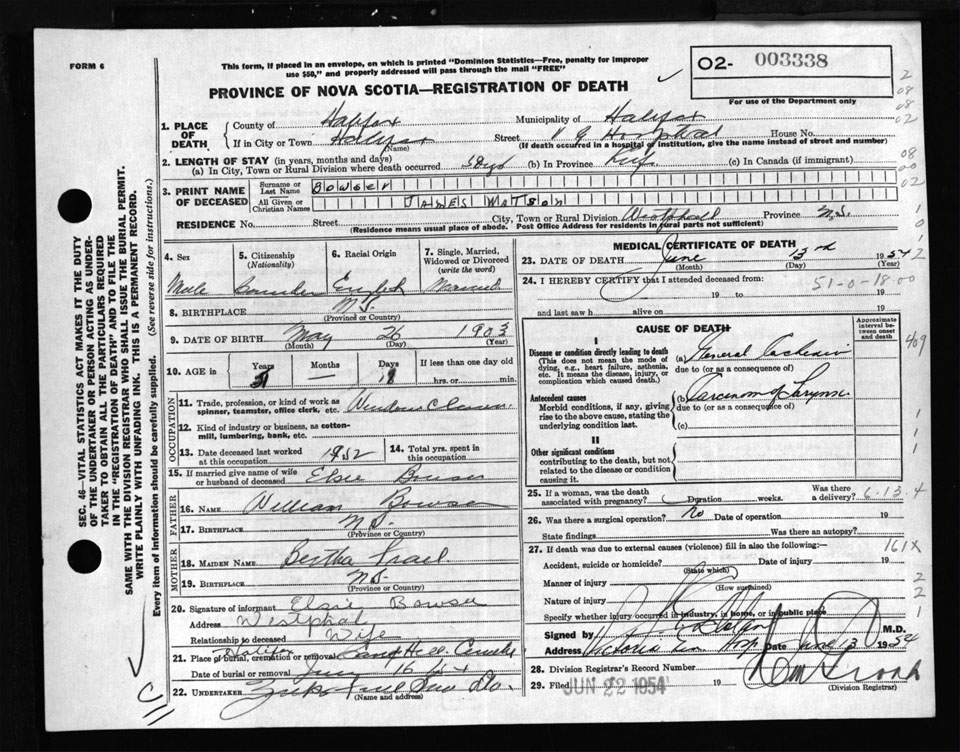 FORM 6
This form, if placed in an envelope, on which is printed "Dominion Statistics—Free, penalty for improper
use $50," and properly addressed will pass through the mail "FREE"
PROVINCE OF NOVA SCOTIA—REGISTRATION OF DEATH
O2- 003338
For use of the Department only
2
08
08
02
1. PLACE OF DEATH
County of Halifax Municipality of Halifax
If in City or Town Halifax Street V G Hospital House No.
(Name) (If death occurred in a hospital or institution, give the name instead of street and number)
2. LENGTH OF STAY (in years, months and days)
(a) In City, Town or Rural Division where death occurred (b) In Province Life (c) In Canada (if immigrant)
08
00
02
3. PRINT NAME OF DECEASED
Surname or Last Name Bowser
All Given or Christian Names JAMES WATSON
RESIDENCE No. Street City, Town or Rural Division Westphal Province N.S.
(Residence means usual place of abode. Post Office Address for residents in rural parts not sufficient)
4. Sex
Male
5. Citizenship
(Nationality)
Canadian
6. Racial Origin
English
7. Single, Married, Widowed or Divorced
(write the word)
Married
8. BIRTHPLACE N.S.
(Province or Country)
9. DATE OF BIRTH May 26 1903
(Month) (Day) (Year)
10. AGE in Years 51 Months — Days 18 If less than one day old
hrs. or min.
OCCUPATION
11. Trade, profession, or kind of work as
spinner, teamster, office clerk, etc. Window Cleaner
12. Kind of industry or business, as cotton-
mill, lumbering, bank, etc.
13. Date deceased last worked
at this occupation 1952
14. Total yrs. spent in
this occupation
15. If married give name of wife
or husband of deceased Elsie Bowser
FATHER
16. NAME William Bowser
17. BIRTHPLACE N.S.
(Province or Country)
MOTHER
18. MAIDEN NAME Bertha
19. BIRTHPLACE N.S.
(Province or Country)
20. Signature of informant Elsie Bowser
Address Westphal
Relationship to deceased Wife
21. Place of burial, cremation or removal Halifax Camp Hill
Date of burial or removal 16
22. UNDERTAKER
(Name and address)
MEDICAL CERTIFICATE OF DEATH
23. DATE OF DEATH June 13rd 1954
(Month) (Day) (Year)
24. I HEREBY CERTIFY that I attended deceased from:
51-0-18-00
19 to 19
and last saw h alive on 19
CAUSE OF DEATH
Approximate interval between onset and death
I
Disease or condition directly leading to death
(This does not mean the mode of dying, e.g., heart failure, asthenia, etc. It means the disease, injury, or complication which caused death.)
(a) General Cachexia
due to (or as a consequence of)
Antecedent causes
Morbid conditions, if any, giving rise to the above cause, stating the underlying condition last.
(b) Carcinoma of Larynx
due to (or as a consequence of)
(c)
II
Other significant conditions
contributing to the death, but not related to the disease or condition causing it.
409
1
1
1
25. If a woman, was the death associated with pregnancy? Duration weeks. Was there a delivery? 6-13-4
26. Was there a surgical operation? No Date of operation 19
State findings Was there an autopsy?
27. If death due to external causes (violence) fill in also the following:— 161X
Accident, suicide or homicide? Date of injury 19
(State which)
Manner of injury
(How sustained)
Nature of injury
Specify whether injury occurred in industry, in home, or in public place
2
2
1
Signed by M.D.
Address Victoria Gen Hosp Date June 13 1954
28. Division Registrar's Record Number
29. Filed JUN 22 1954 19
(Division Registrar)
SEC. 46—VITAL STATISTICS ACT MAKES IT THE DUTY
OF THE UNDERTAKER OR PERSON ACTING AS UNDER-
TAKER TO OBTAIN ALL THE PARTICULARS REQUIRED
IN THE "REGISTRATION OF DEATH" AND TO FILE THE
SAME WITH THE DIVISION REGISTRAR WHO SHALL ISSUE THE BURIAL PERMIT.
WRITE PLAINLY WITH UNFADING INK. THIS IS A PERMANENT RECORD.
Every item of information should be carefully supplied. (See reverse side for instructions.)